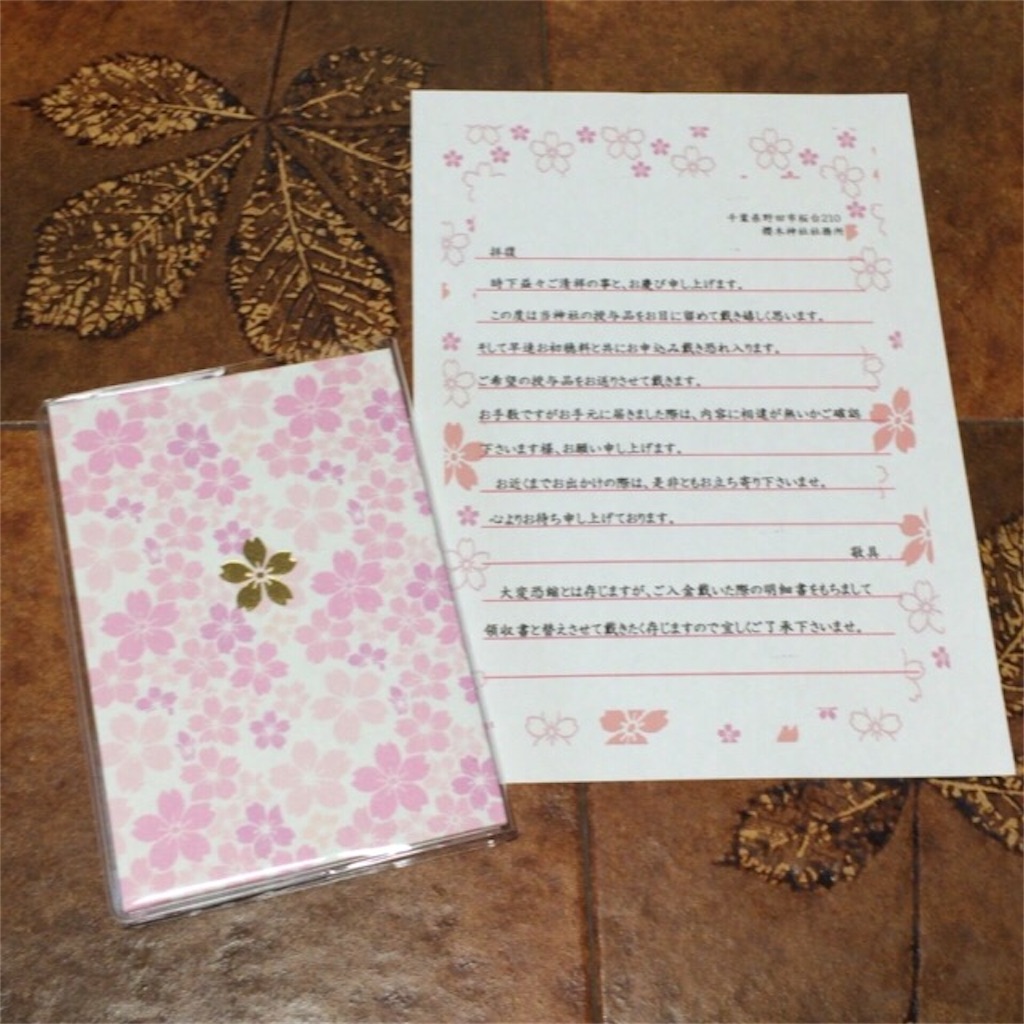 千葉県野田市桜台210
櫻木神社社務所
拝復
時下益々ご清祥の事と、お慶び申し上げます。
この度は当神社の授与品をお目に留めて戴き嬉しく思います。
そして早速お初穂料と共にお申込み戴き恐れ入ります。
ご希望の授与品をお送りさせて戴きます。
お手数ですがお手元に届きました際は、内容に相違が無いかご確認
下さいます様、お願い申し上げます。
お近くまでお出かけの際は、是非ともお立ち寄り下さいませ。
心よりお待ち申し上げております。
敬具
大変恐縮とは存じますが、ご入金戴いた際の明細書をもちまして
領収書と替えさせて戴きたく存じますので宜しくご了承下さいませ。